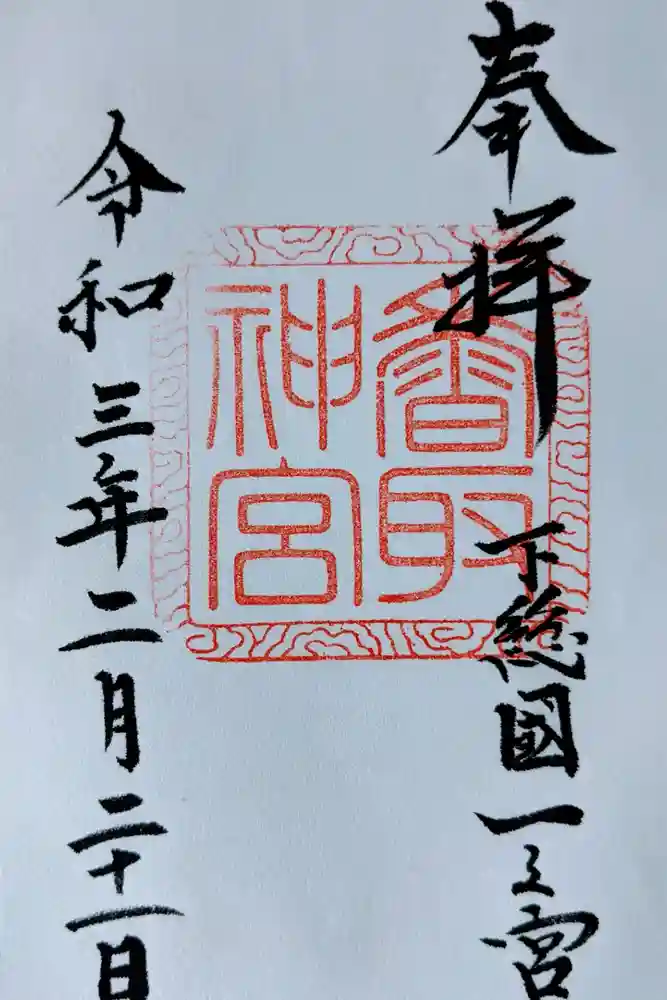 奉拝
下総國一之宮
香取
神宮
令和三年二月二十一日